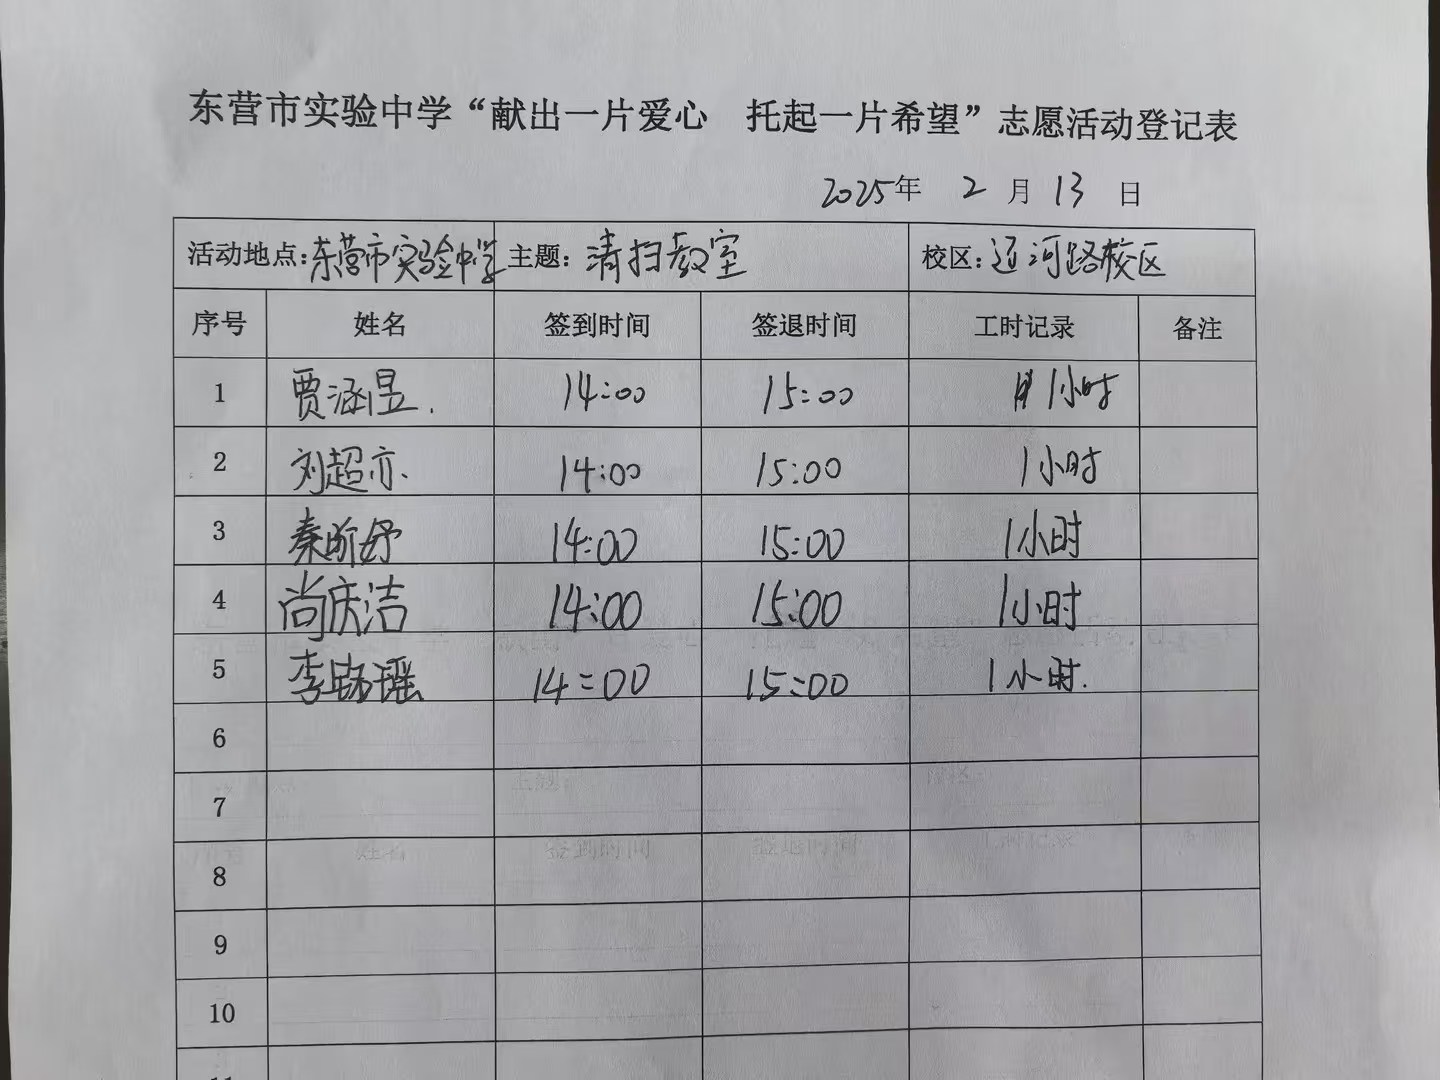 东营市实验中学“献出一片爱心 托起一片希望”志愿活动登记表
2025年 2 月 13 日
活动地点:东营市实验中学 主题:清扫教室 校区:运河路校区
序号 姓名 签到时间 签退时间 工时记录 备注
1 贾涵昱. 14:00 15:00 1小时
2 刘超亦. 14:00 15:00 1小时
3 秦昕妤 14:00 15:00 1小时
4 尚庆洁 14:00 15:00 1小时
5 14:00 15:00 1小时.
6
7
8
9
10